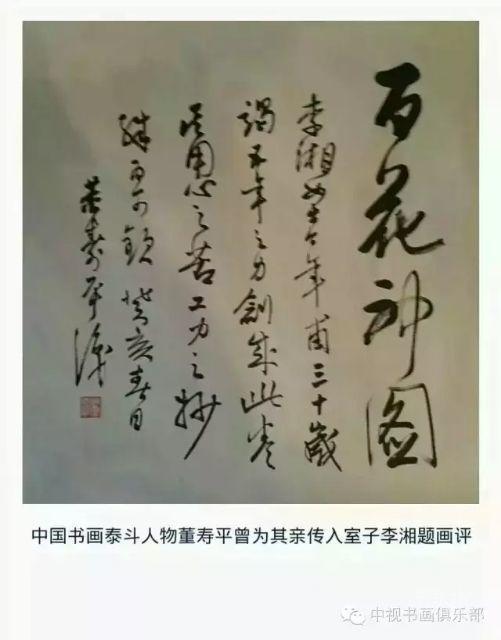 百花神图
李湘女士今年甫三十岁
竭五年之力创成此卷
其用心之苦工力之妙
殊可钦 癸亥春日
董寿平识
中国书画泰斗人物董寿平曾为其亲传入室子李湘题画评
中视书画俱乐部